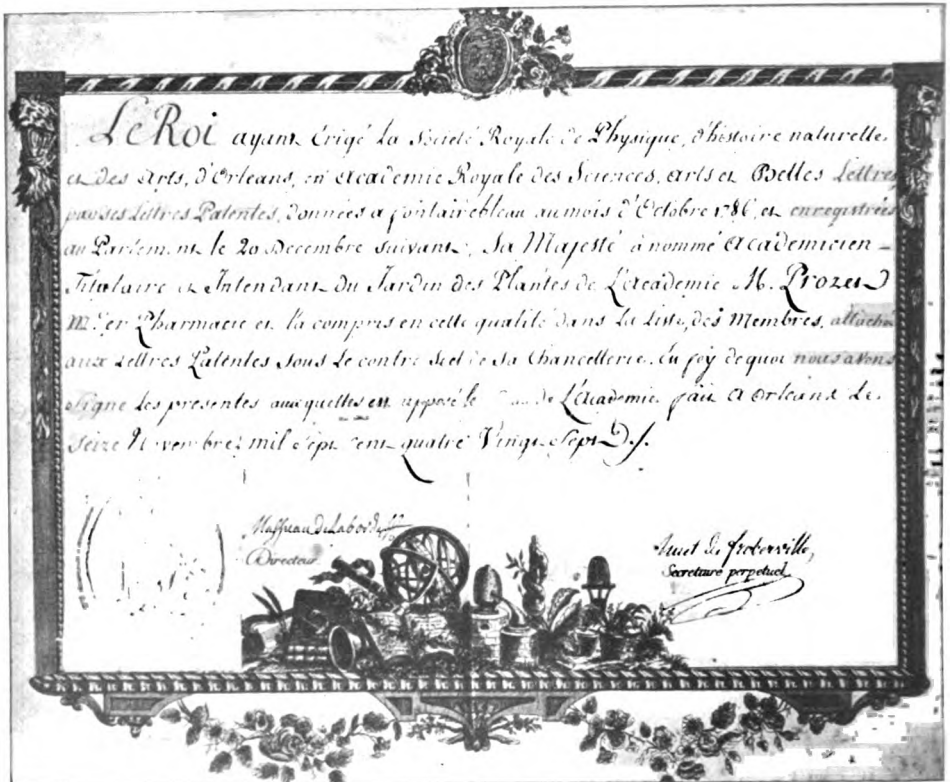 Le Roi ayant Erigé La Société Royale de Physique, d'histoire naturelle
et des Arts, d'Orleans, en Academie Royale des Sciences, Arts et Belles Lettres
par ses Lettres Patentes, données a fontainebleau au mois d'Octobre 1786, et enregistrées
au Parlement le 20 Decembre suivant, Sa Majesté à nommé Academicien
Titulaire et Intendant du Jardin des Plantes de L'Academie M. Prozet
Me en Pharmacie et l'a compris en cette qualité dans La Liste des Membres, attachée
aux Lettres Patentes sous Le contre Scel de Sa Chancellerie. En foy de quoi nous avons
Signé Les presentes auxquelles est apposé le de L'Academie fait a Orleans Le
Seize Novembre mil Sept Cent quatre Vingt Sept
Massuau de Laborde
Directeur
huet de froberville,
Secretaire perpetuel